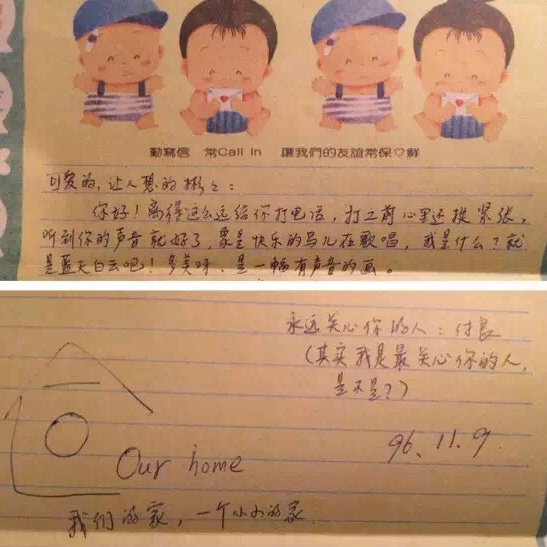 勤寫信 常Call in 讓我們的友誼常保♡鮮
可爱的,让人想的彬彬:
你好!离得这么远给你打电话,打之前心里还挺紧张,
听到你的声音就好了,象是快乐的鸟儿在歌唱,我是什么?就
是蓝天白云吧!多美呀.是一幅有声音的画。
永远关心你的人:付良
(其实我是最关心你的人,
是不是?)
96.11.9.
Our home
我们的家,一个小小的家.